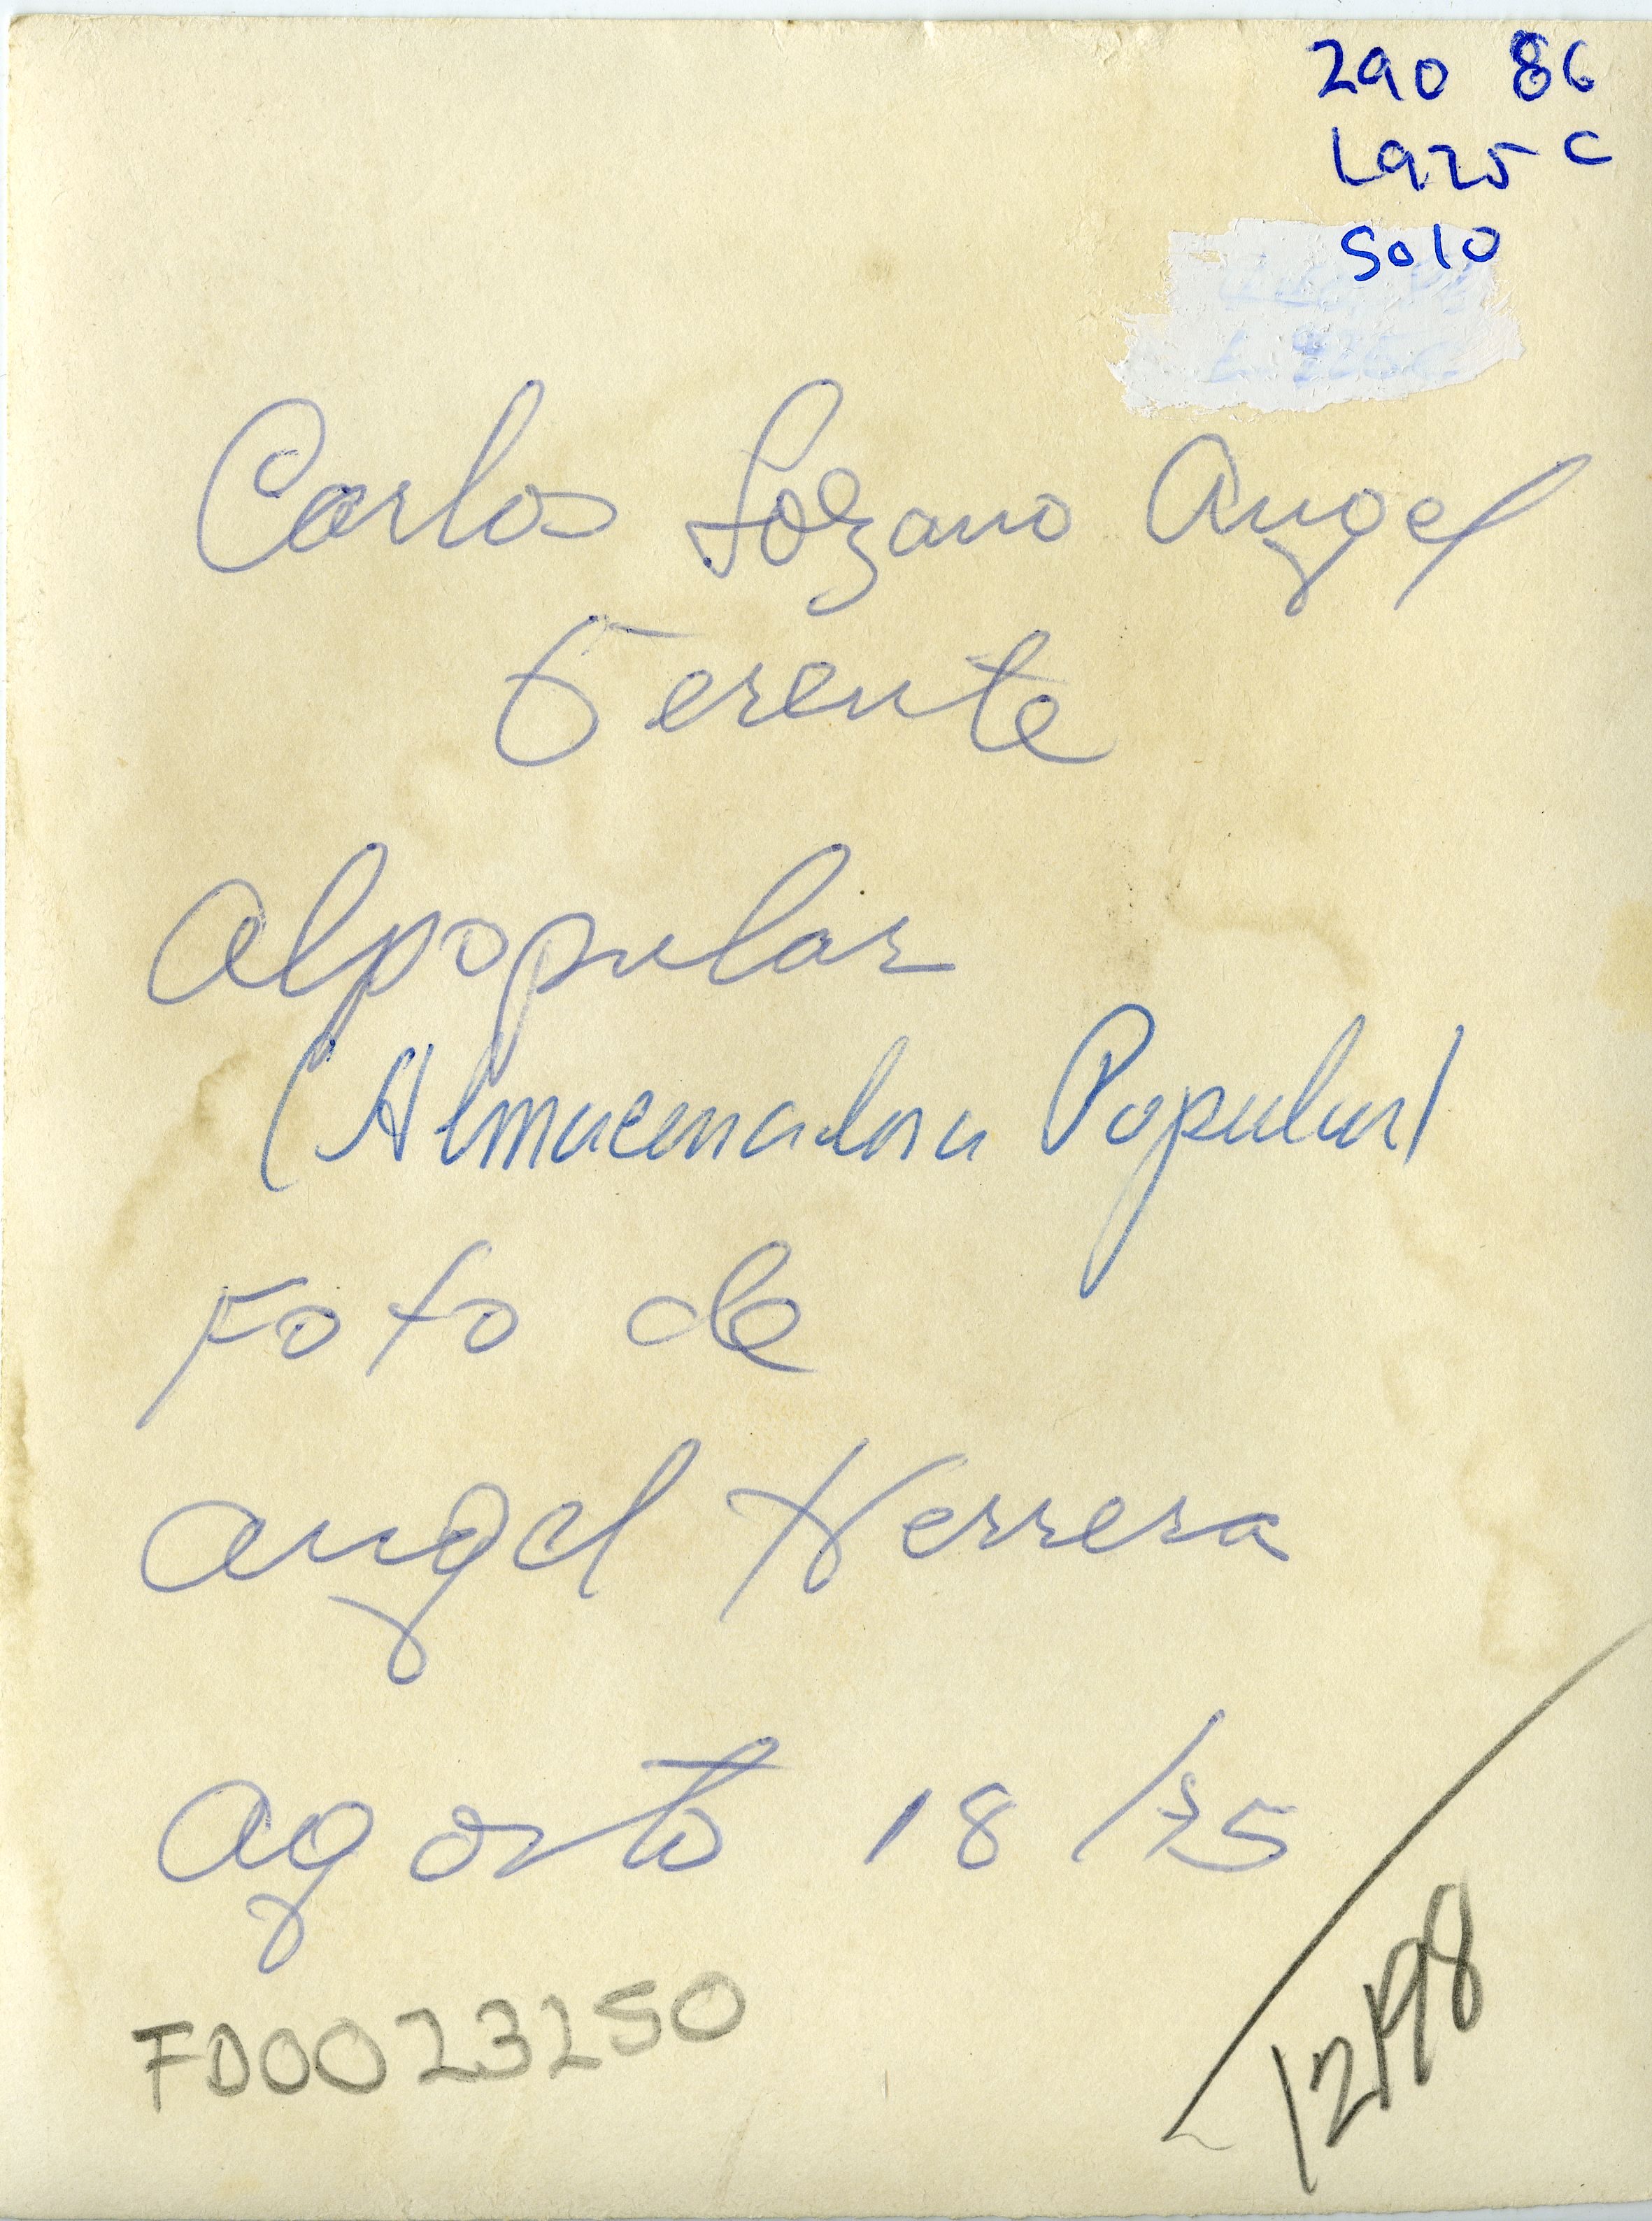 290 86
L925 C
Solo
Carlos Lozano Angel
Gerente
Alpopular
(Almacenadora Popular)
Foto de
Angel Herrera
Agosto 18/75
FD0023250
12198